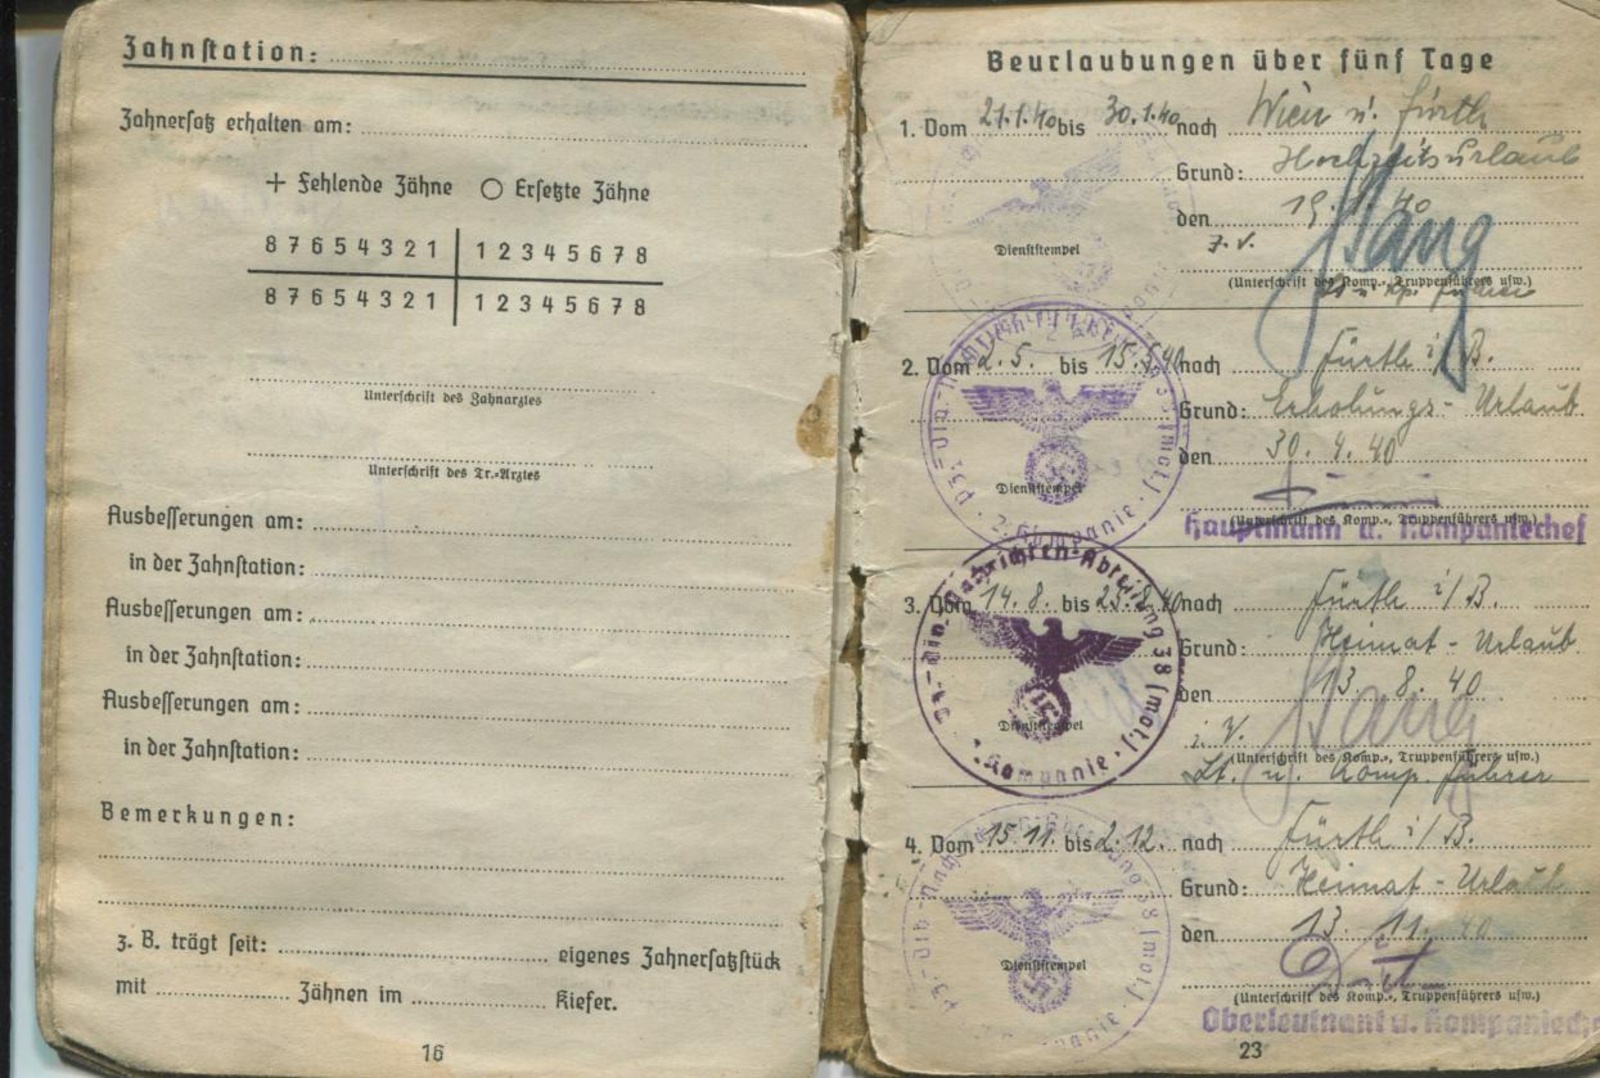 Zahnstation:
Zahnersatz erhalten am:
+ Fehlende Zähne ○ Ersetzte Zähne
8 7 6 5 4 3 2 1 | 1 2 3 4 5 6 7 8
8 7 6 5 4 3 2 1 | 1 2 3 4 5 6 7 8
Unterschrift des Zahnarztes
Unterschrift des Tr.-Arztes
Ausbesserungen am:
in der Zahnstation:
Ausbesserungen am:
in der Zahnstation:
Ausbesserungen am:
in der Zahnstation:
Bemerkungen:
z. B. trägt seit: eigenes Zahnersatzstück
mit Zähnen im Kiefer.
16
Beurlaubungen über fünf Tage
1. Vom 21.1.40 bis 30.1.40 nach Wien u. Fürth
Grund: Hochzeitsurlaub
den 19.1.40
Dienststempel
(Unterschrift des Komp.-, Truppenführers usw.)
2. Vom 2.5. bis 15.5.40 nach Fürth i/B.
Grund: Erholungs-Urlaub
den 30.4.40
Dienststempel
(Unterschrift des Komp.-, Truppenführers usw.)
Hauptmann u. Kompaniechef
Pz.-Div.-Nachrichten-Abteilung 38 (mot.) · 2. Kompanie ·
3. Vom 14.8. bis 25.8.40 nach Fürth i/B.
Grund: Heimat-Urlaub
den 13.8.40
Dienststempel
i. V.
(Unterschrift des Komp.-, Truppenführers usw.)
Lt. u. Komp. führer
Pz.-Div.-Nachrichten-Abteilung 38 (mot.) · Kompanie ·
4. Vom 15.11. bis 2.12. nach Fürth i/B.
Grund: Heimat-Urlaub
den 13.11.40
Dienststempel
(Unterschrift des Komp.-, Truppenführers usw.)
Oberleutnant u. Kompaniechef
23